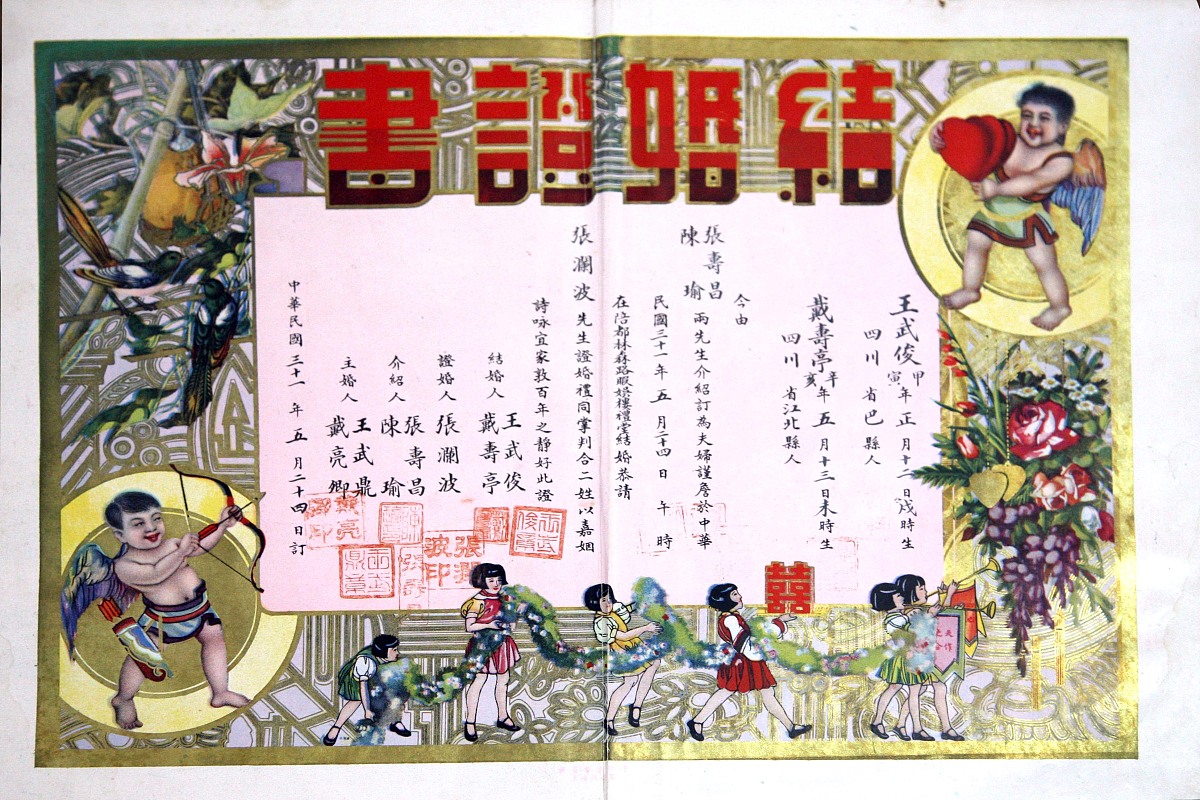 結婚證書
王武俊甲寅年正月十二日戌時生
四川省巴縣人
戴壽亭辛亥年五月十三日未時生
四川省江北縣人
今由
張壽昌
陳瑜
兩先生介紹訂為夫婦謹詹於中華
民國三十一年五月二十四日午時
在陪都林森路暇娛樓禮堂結婚恭請
張瀾波先生證婚禮同掌判合二姓以嘉姻
詩咏宜家敦百年之靜好此證
結婚人
王武俊
戴壽亭
證婚人
張瀾波
介紹人
張壽昌
陳瑜
主婚人
王武鼎
戴亮卿
中華民國三十一年五月二十四日訂
囍
天作
之合